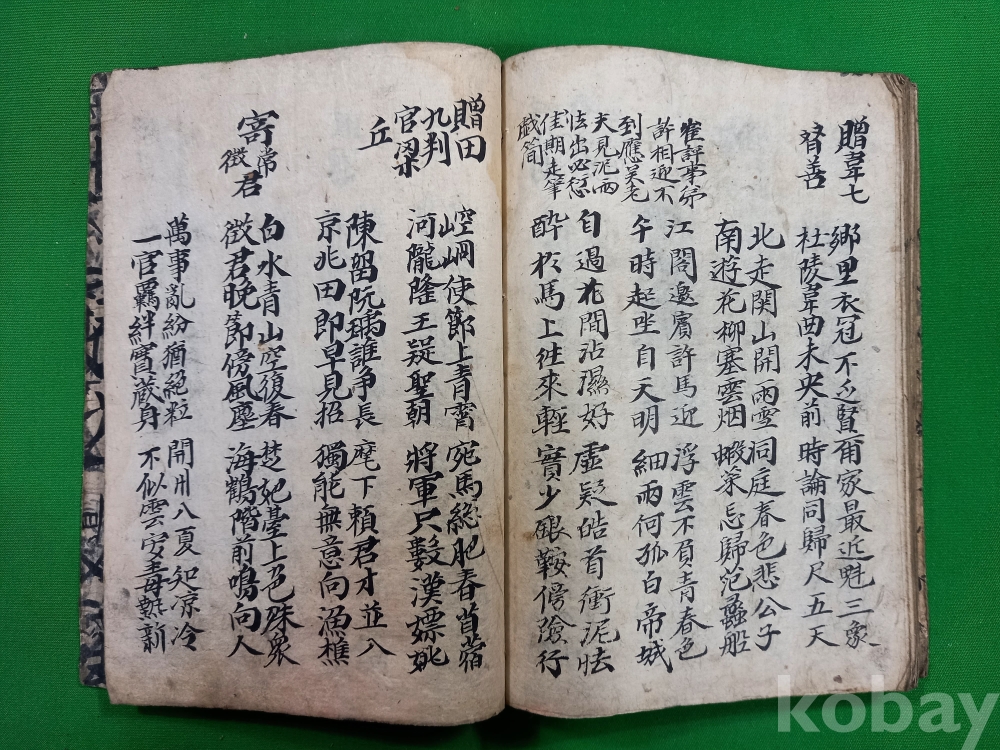 贈韋七
賛善
鄉里衣冠不乏賢 爾家最近魁三象
杜陵韋曲未央前 時論同歸尺五天
北走関山開雨雪 洞庭春色悲公子
南遊花柳塞雲烟 蝦菜忘歸范蠡船
崔評事弟
許相迎不
到應美老
夫見泥雨
怯出必愆
佳期走筆
戱簡
江閣邀賓許馬迎 浮雲不負青春色
午時起坐自天明 細雨何孤白帝城
自過花間沾濕好 虛疑皓首衝泥怯
酔於馬上往來輕 實少銀鞍傍險行
贈田
九判
官梁
丘
崆峒使節上青霄 宛馬緫肥春苜蓿
河隴隆王疑聖朝 將軍只數漢嫖姚
陳留阮瑀誰争長 麾下頼君才並八
京兆田郎早見招 獨能無意向漁樵
寄常
徵君
白水青山空復春 楚妃臺上色殊衆
徵君晚節傍風塵 海鶴階前鳴向人
萬事亂紛猶絕粒 開州八夏知凉冷
一官羈絆實蔵身 不似雲安毒熱新
kobay